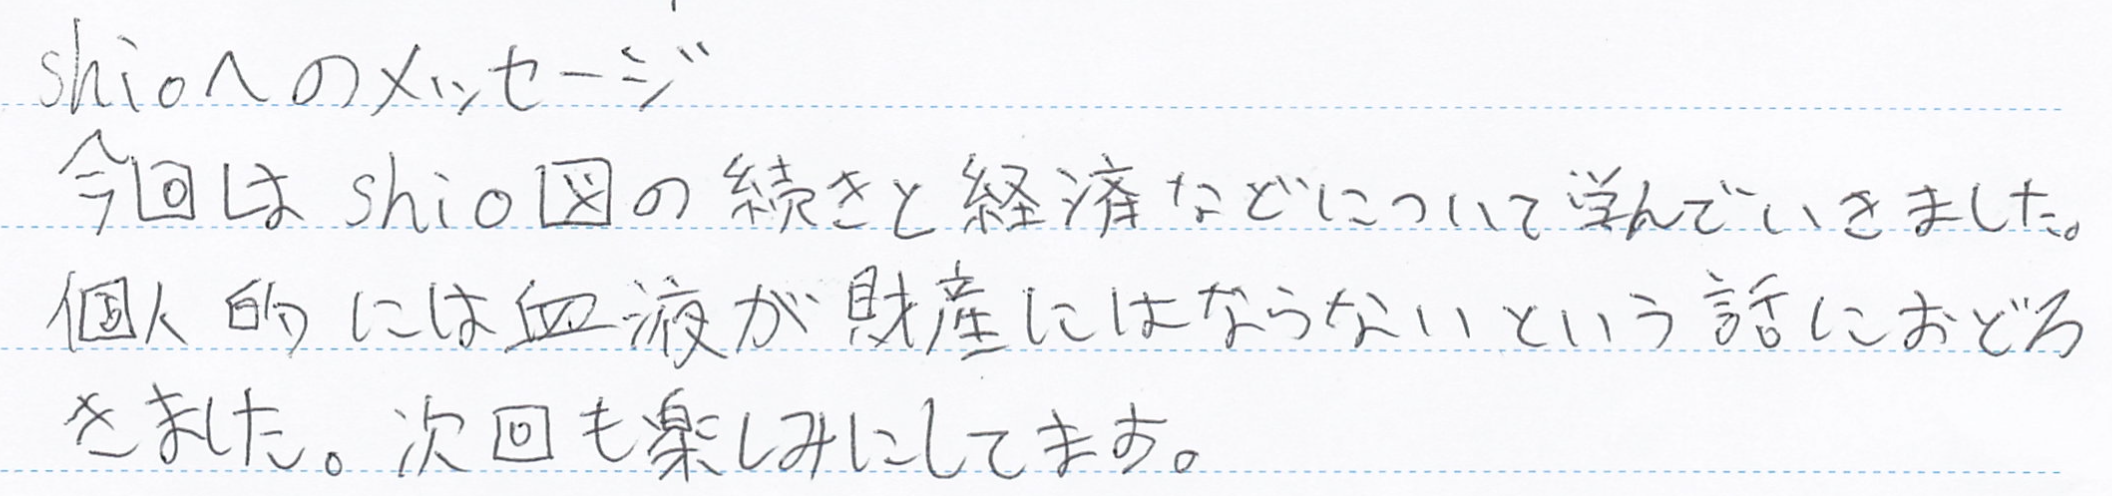 shioへのメッセージ
今回はshio図の続きと経済などについて学んでいきました。
個人的には血液が財産にはならないという話におどろ
きました。次回も楽しみにしてます。